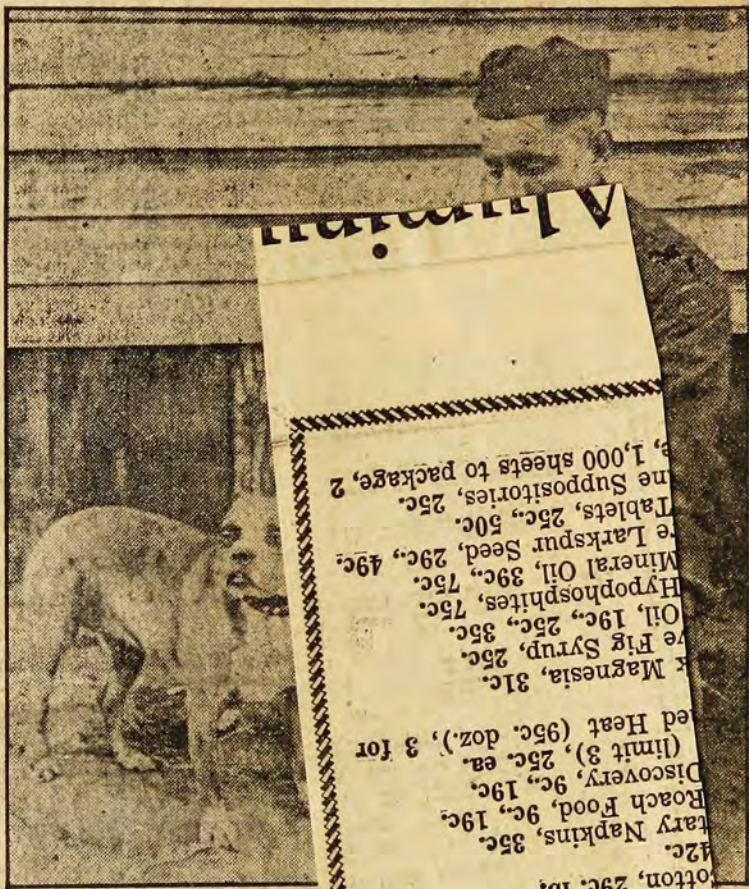 otton, 29c. lb.
42c.
tary Napkins, 35c.
Roach Food, 9c., 19c.
Discovery, 9c., 19c.
(limit 3), 25c. ea.
ed Heat (95c. doz.), 3 for
k Magnesia, 31c.
ve Fig Syrup, 25c.
Oil, 19c., 25c., 35c.
Hypophosphites, 75c.
Mineral Oil, 39c., 75c.
re Larkspur Seed, 29c., 49c.
Tablets, 25c., 50c.
ne Suppositories, 25c.
e, 1,000 sheets to package, 2
Alumin